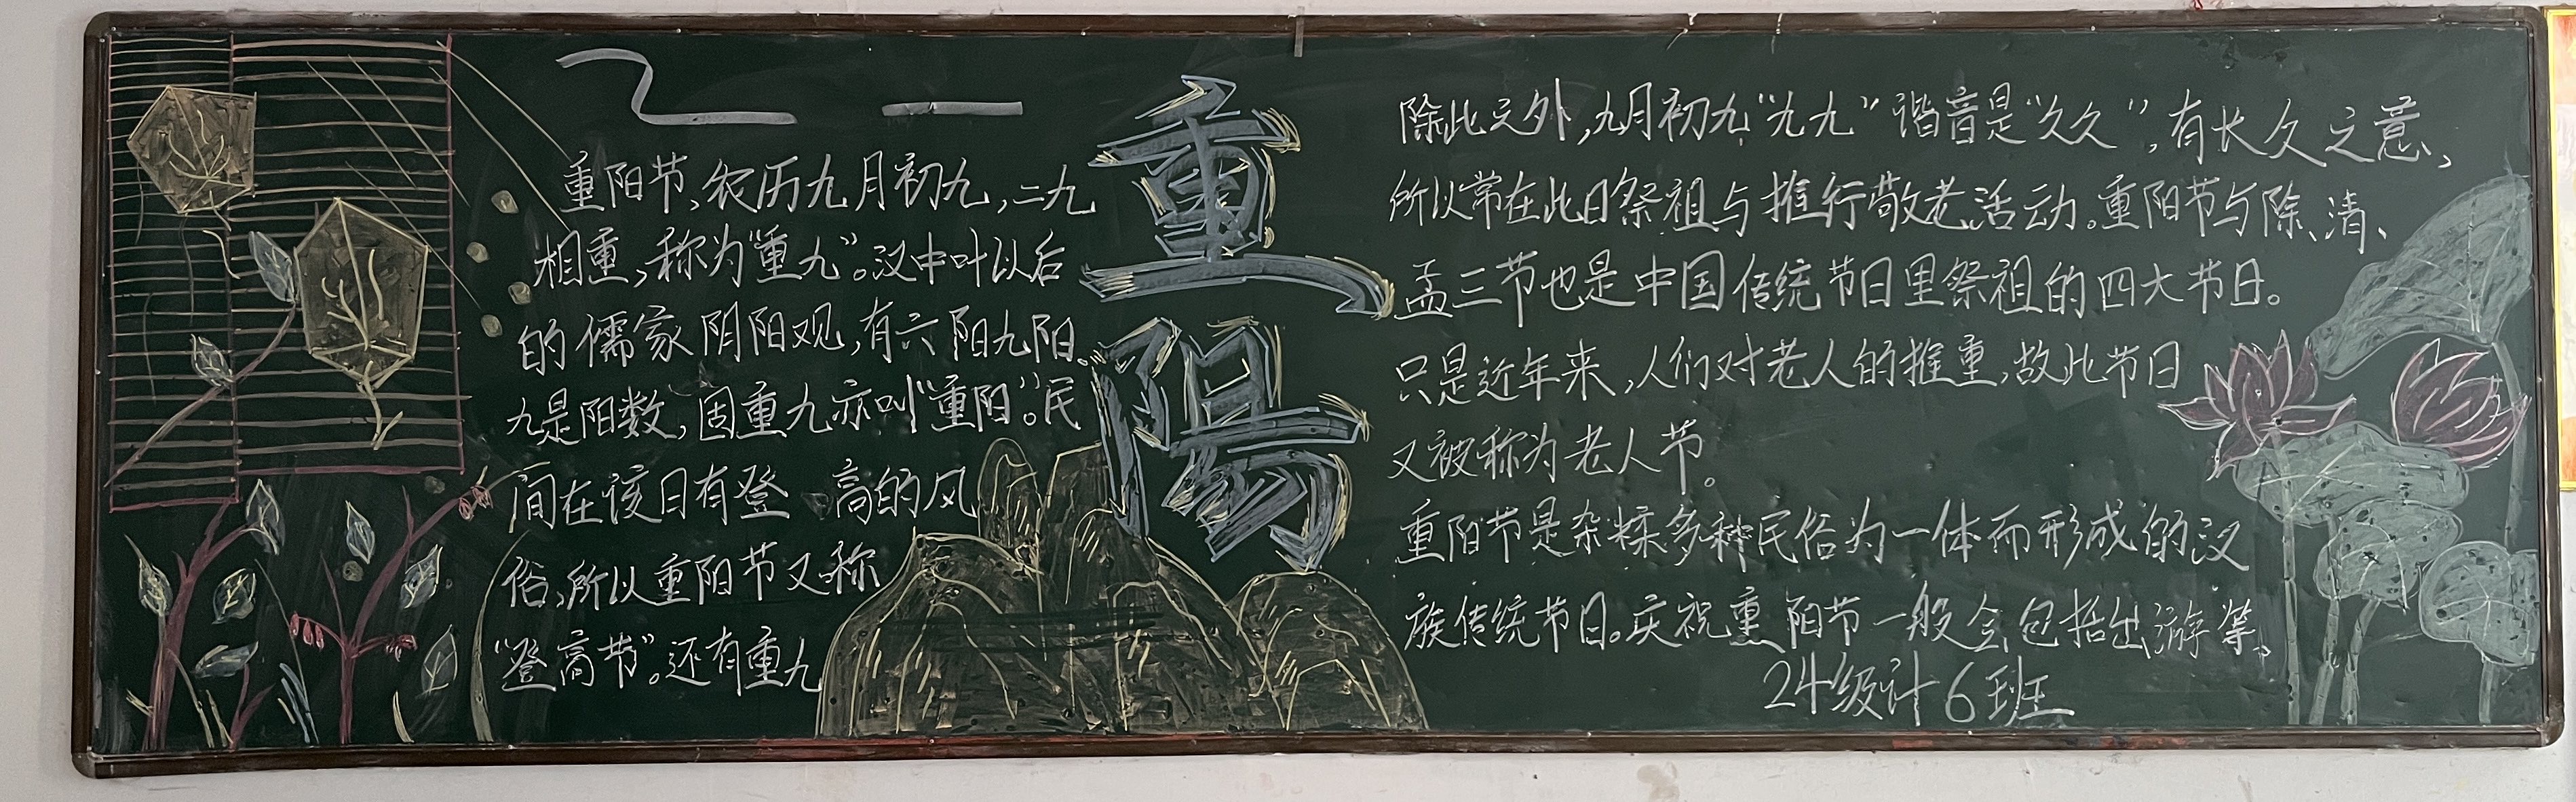 重阳节，农历九月初九，二九
相重，称为"重九"。汉中叶以后
的儒家阴阳观，有六阳九阳。
九是阳数，固重九亦叫"重阳"。民
间在该日有登高的风
俗，所以重阳节又称
"登高节"。还有重九
重
陽
除此之外，九月初九"九九"谐音是"久久"，有长久之意，
所以常在此日祭祖与推行敬老活动。重阳节与除、清、
盂三节也是中国传统节日里祭祖的四大节日。
只是近年来，人们对老人的推重，故此节日
又被称为老人节。
重阳节是杂糅多种民俗为一体而形成的汉
族传统节日。庆祝重阳节一般会包括出游等、
24级计6班